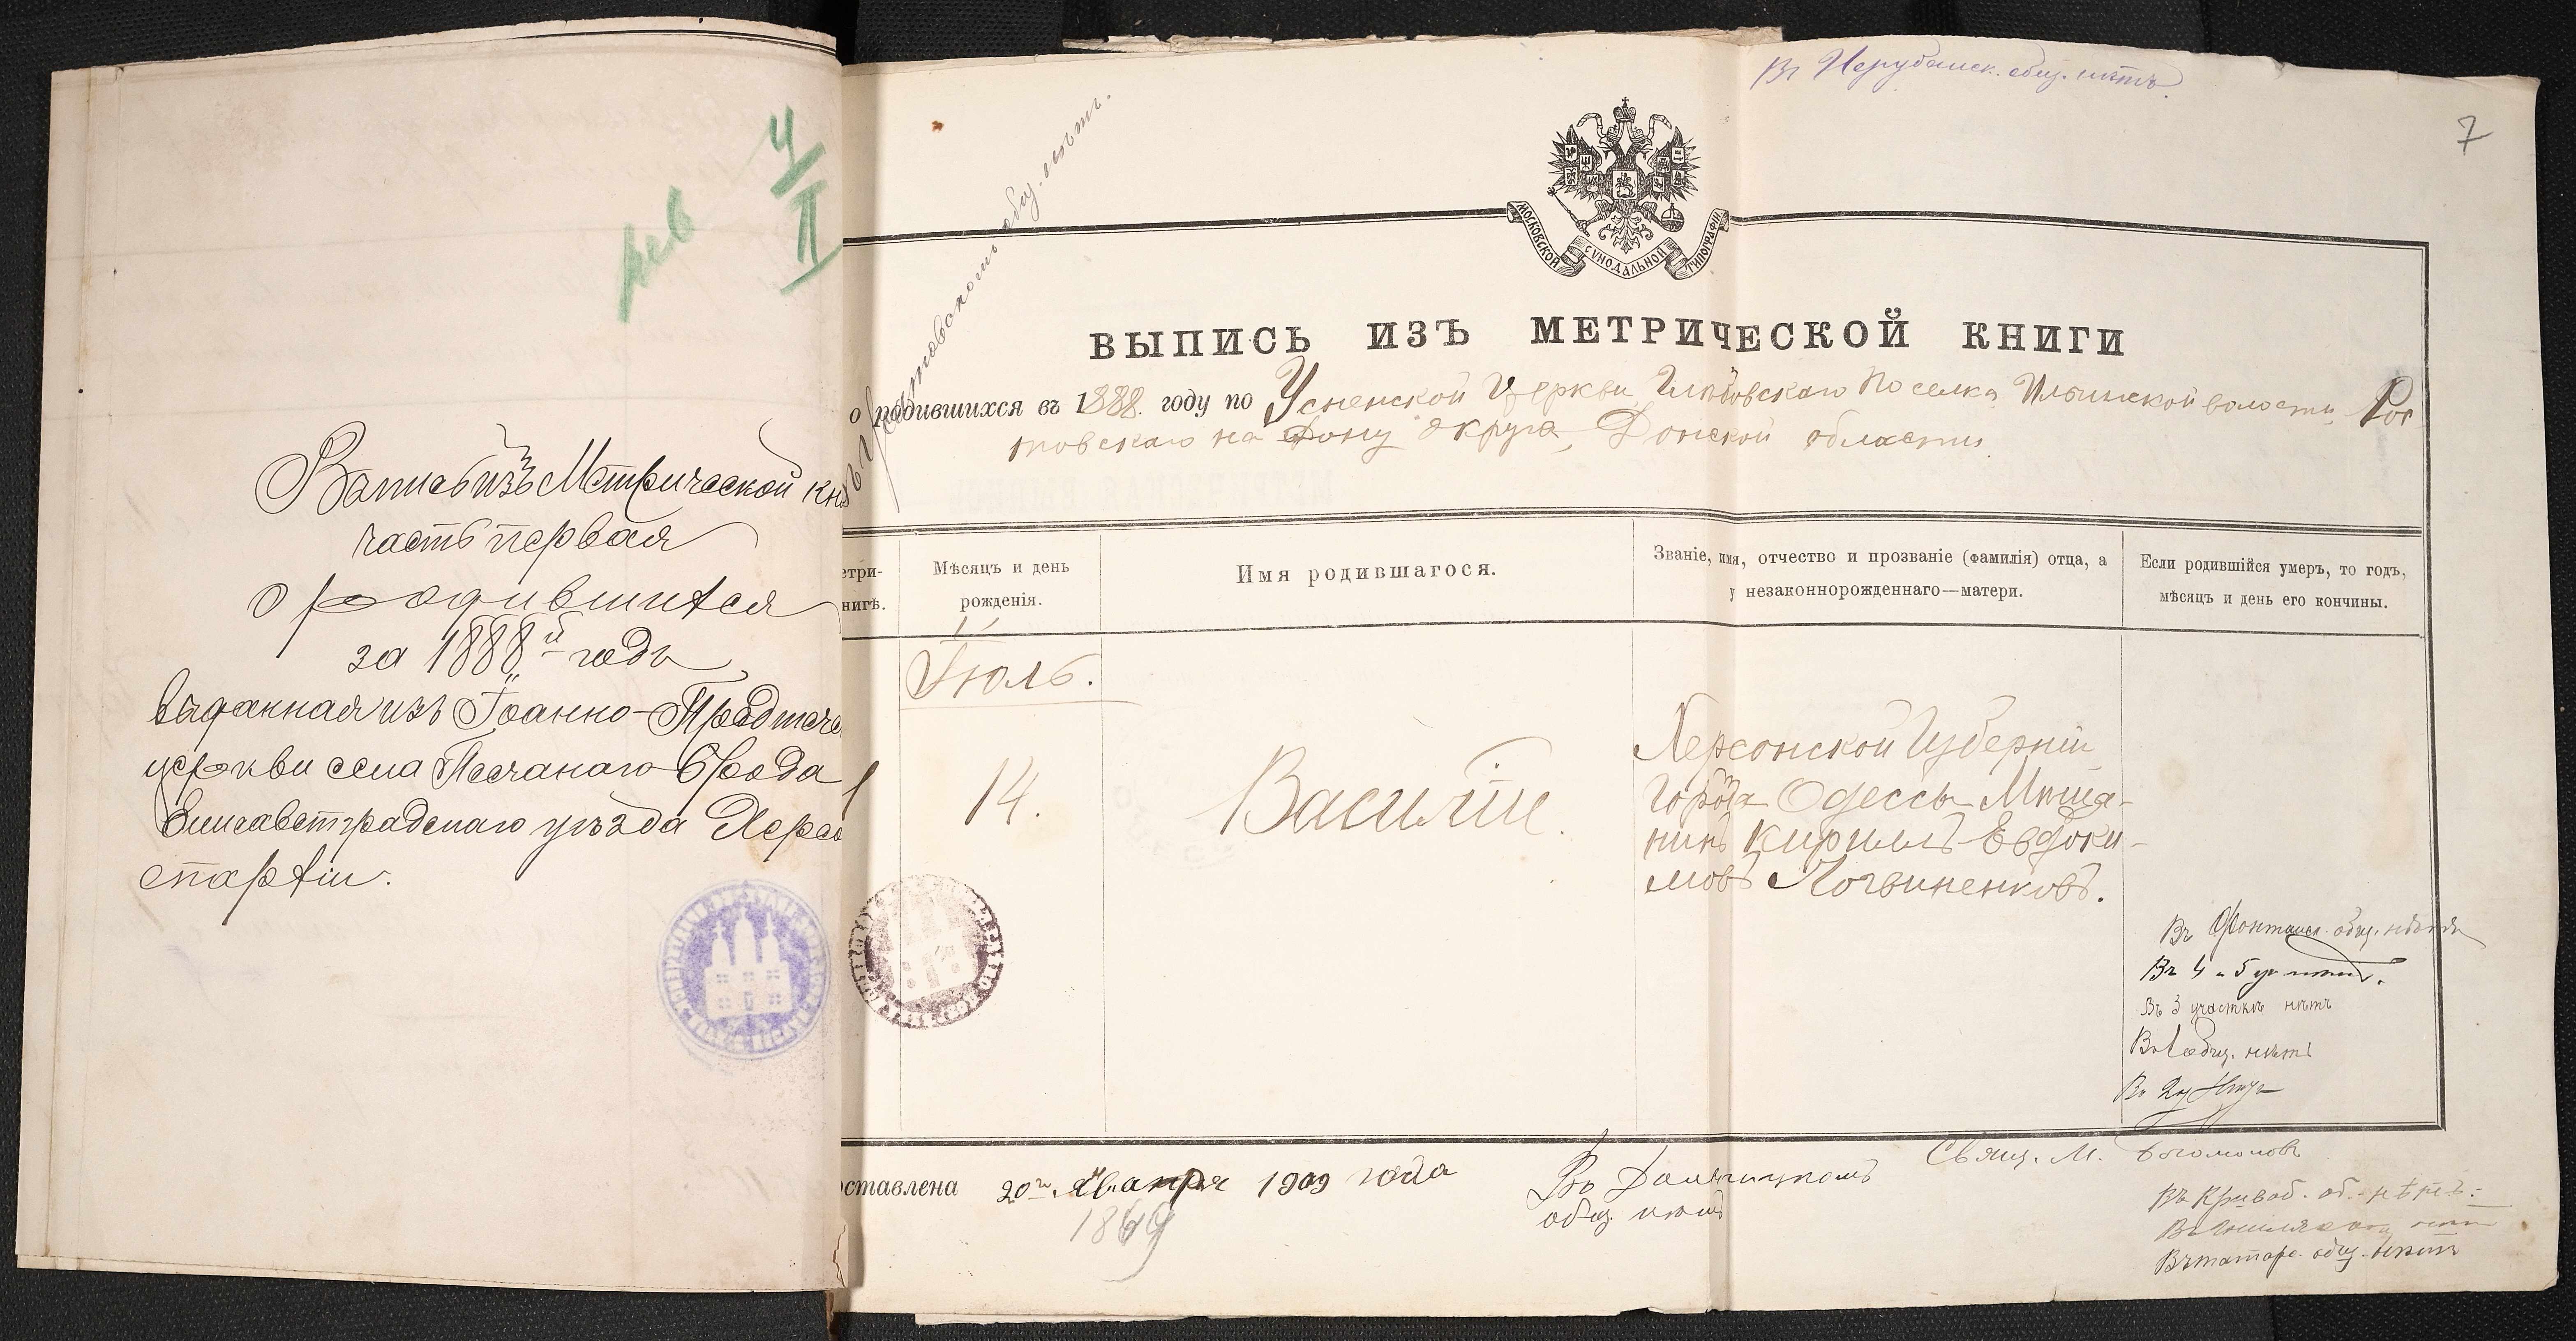 4
II
Выпись изъ Метрической кн
часть первая
о родившихся
за 1888й годъ
выданная изъ Іоанно-Предтече
церкви села Песчанаго Брода
Елисаветградскаго уѣзда Херсо
епархіи.
Въ общ. нѣтъ.
7
МОСКОВСКОЙ СУНОДАЛЬНОЙ ТИПОГРАФІИ
ВЫПИСЬ ИЗЪ МЕТРИЧЕСКОЙ КНИГИ
о родившихся въ 1888. году по Успенской Церкви Поселка волости, Рос
товскаго на Дону округа, Донской области
общ. нѣтъ.
етри-
нигѣ.
Мѣсяцъ и день
рожденія.
Имя родившагося.
Званіе, имя, отчество и прозваніе (фамилія) отца, а
у незаконнорожденнаго—матери.
Если родившійся умеръ, то годъ,
мѣсяцъ и день его кончины.
Іюль.
14.
Василій.
Херсонской Губерніи
города Одессы Мѣща-
нинъ Кириллъ Евдоки-
мовъ Логвиненковъ.
Въ Фонтанск. общ. нѣтъ
Въ 4 и 5 уч нѣтъ.
Въ 3 участкѣ нѣтъ
Въ 1 общ. нѣтъ
оставлена 20го Января 1909 года
1869
Въ Дальницкомъ
общ. нѣтъ
Свящ. М. Богомоловъ
Въ Кривоб. об. нѣтъ.
Въ нѣтъ
Въ татарс. общ. нѣтъ